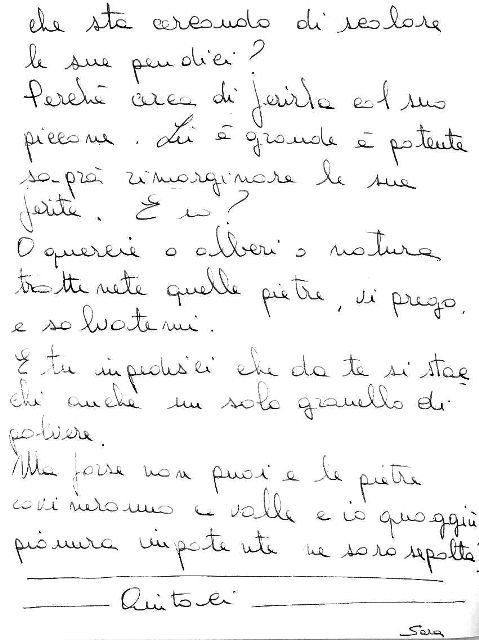 che sta cercando di scalare
le sue pendici?
Perchè cerca di ferirla col suo
piccone. Lei è grande è potente
saprà rimarginare le sue
ferite. E io?
O querce o alberi o natura
trattenete quelle pietre, vi prego,
e salvatemi.
E tu impedisci che da te si stac
chi anche un solo granello di
polvere.
Ma forse non puoi e le pietre
rovineranno a valle e io quaggiù
pianura impotente ne sarò sepolta.
Sara